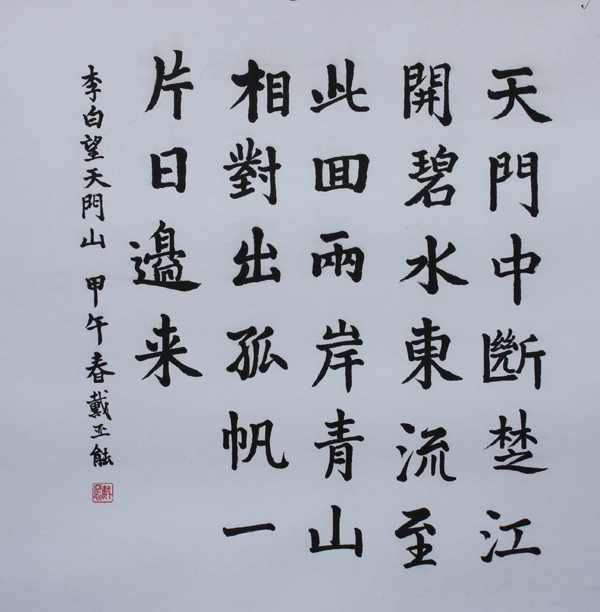 天門中斷楚江
開碧水東流至
此回兩岸青山
相對出孤帆一
片日邊来
李白望天門山 甲午春戴亚能